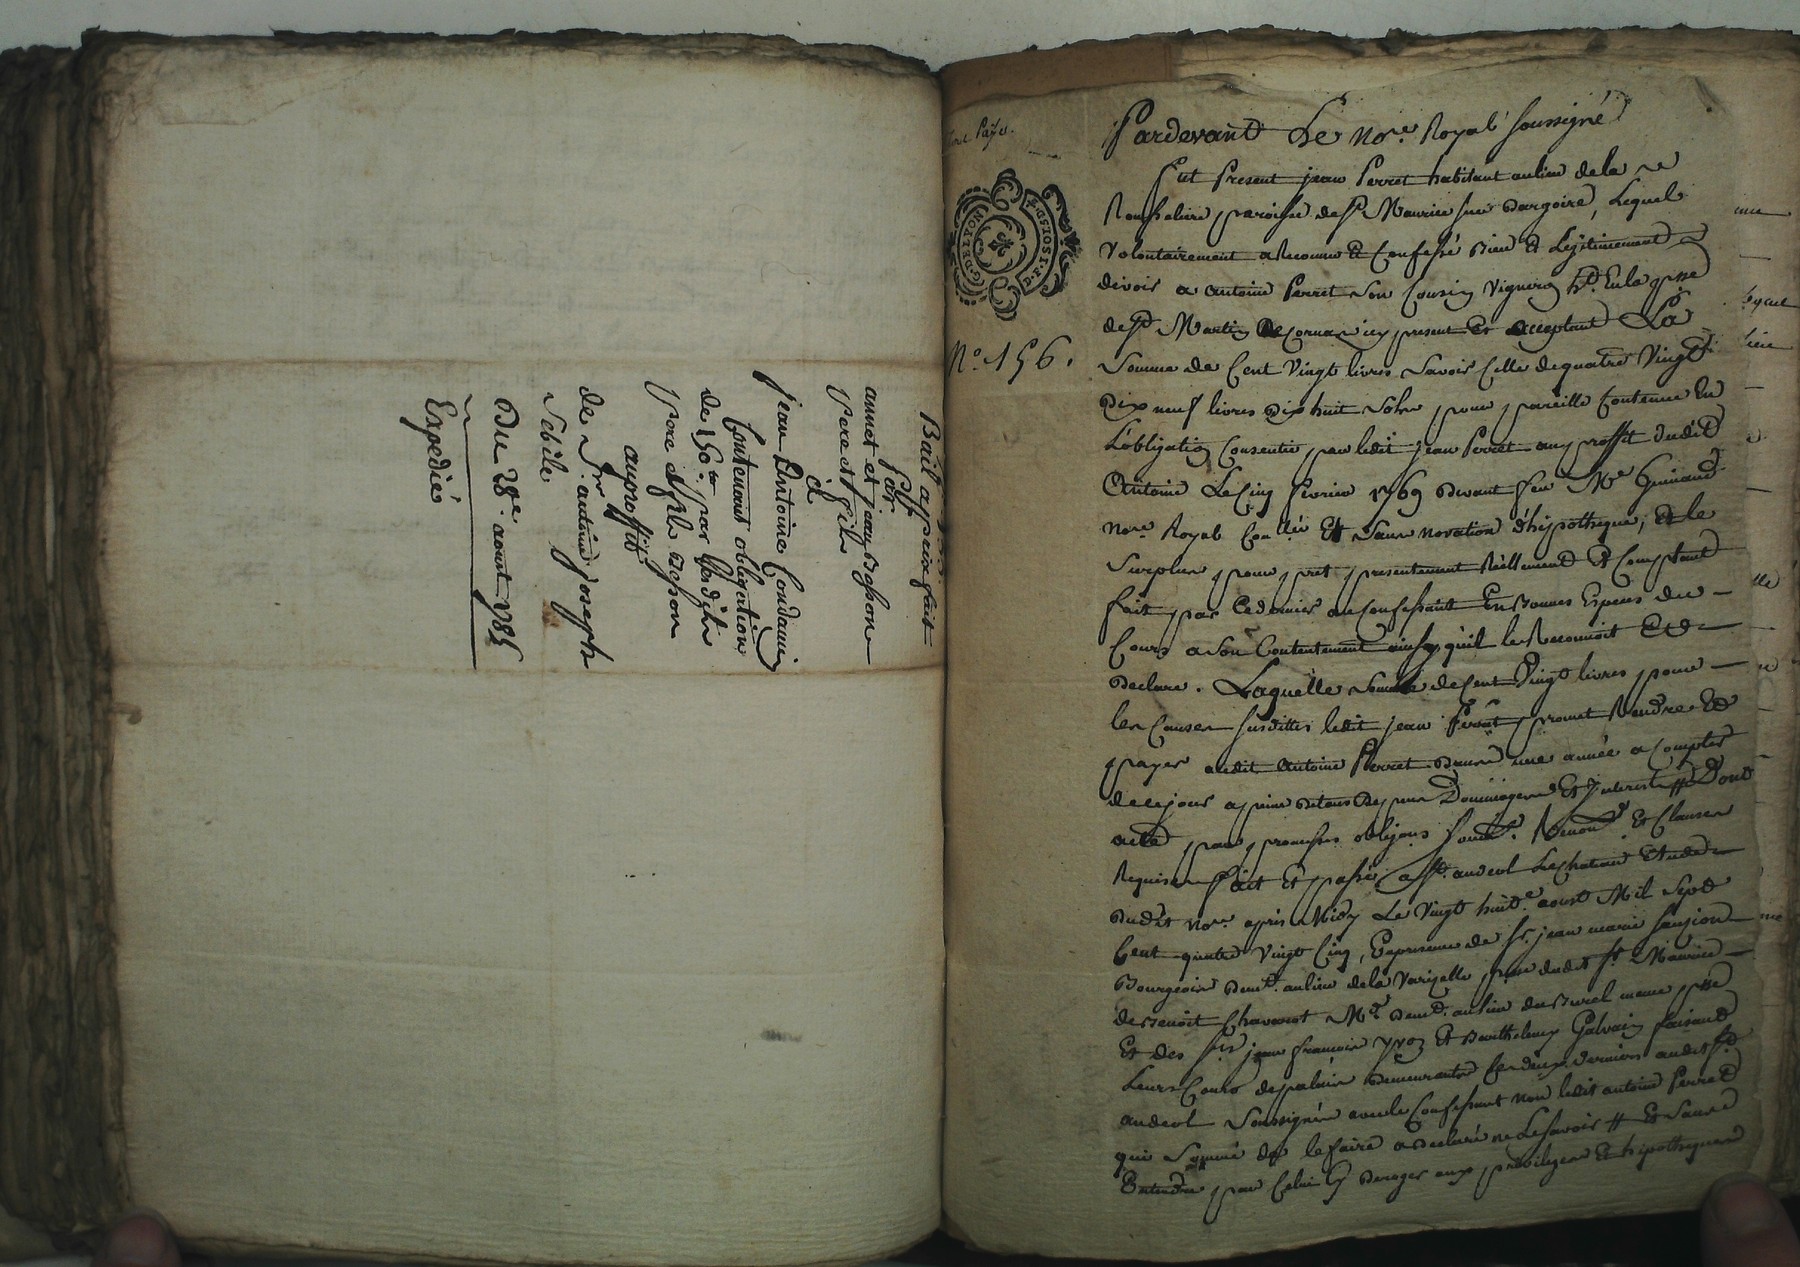 Bail a prix fait
Par
annet et jean Besson
pere et fils
à
jean Antoine Condamin
Contenant obligation
de 150# par lesdits
pere et fils Besson
au proffit
de Sr. antoine joseph
Sebile
Du 28e. aout 1785
Expedié
Nº. 156.
G. DE LYON
Pardevant Le Nore. Royal soussigné
fut Present jean Perret habitant au lieu de la
paroisse de St Maurice sur Dargoire, Lequel
Volontairement a Reconnu Et Confessé Bien Et Legitimement
devoir a Antoine Perret Son Cousin Vigneron ht. En la psse
de St Martin De Cornas icy present Et acceptant La
Somme de Cent Vingt livres Savoir Celle de quatre Vingt
Dix neuf livres Dix huit Sols pour pareille Contenue En
L'obligation Consentie par ledit jean Perret au proffit dudit
Antoine Le Cinq fevrier 1769 Devant feu Me Guinand
Nore Royal Con llée Et Sans novation d'hipotheque, Et le
Surplus pour pret presentement Réellement Et Comptant
fait par Ce dernier au Confessant En Bonnes Especes du
Cours a Son Contentement ainsy qu'il le Reconnoit Et
Declare. Laquelle Somme de Cent Vingt livres pour
les Causes Susdittes ledit jean Perret promet Rendre Et
payer audit Antoine Perret Dans une année a Compter
de ce jour a peine de tous Depens Dommages Et Interest # Dont
acte par promesses obligaons Soumons. Renonons. Et Clauses
Requises fait Et passé a St. andeol Le Chateau Etude
Dudit Nore. après Midy Le Vingt huite. aoust Mil Sept
Cent quatre Vingt Cinq, En presence de Sr. jean marie
Bourgeois Demt. au lieu de la Varizelle psse dudit St Maurice
de Benoit Chavanot Md. Demt. au lieu du Burel meme psse
Et des Srs jean francois Yvon Et Barthelemy Galvain faisant
Leurs Cours de palais Demeurants Ces deux Derniers audit St.
andeol Soussignés avec le Confessant non ledit antoine Perret
qui Sommé de le faire a Declaré ne Le Savoir # Et Sans
Entendre par Celui cy Deroger aux privileges Et hipotheques